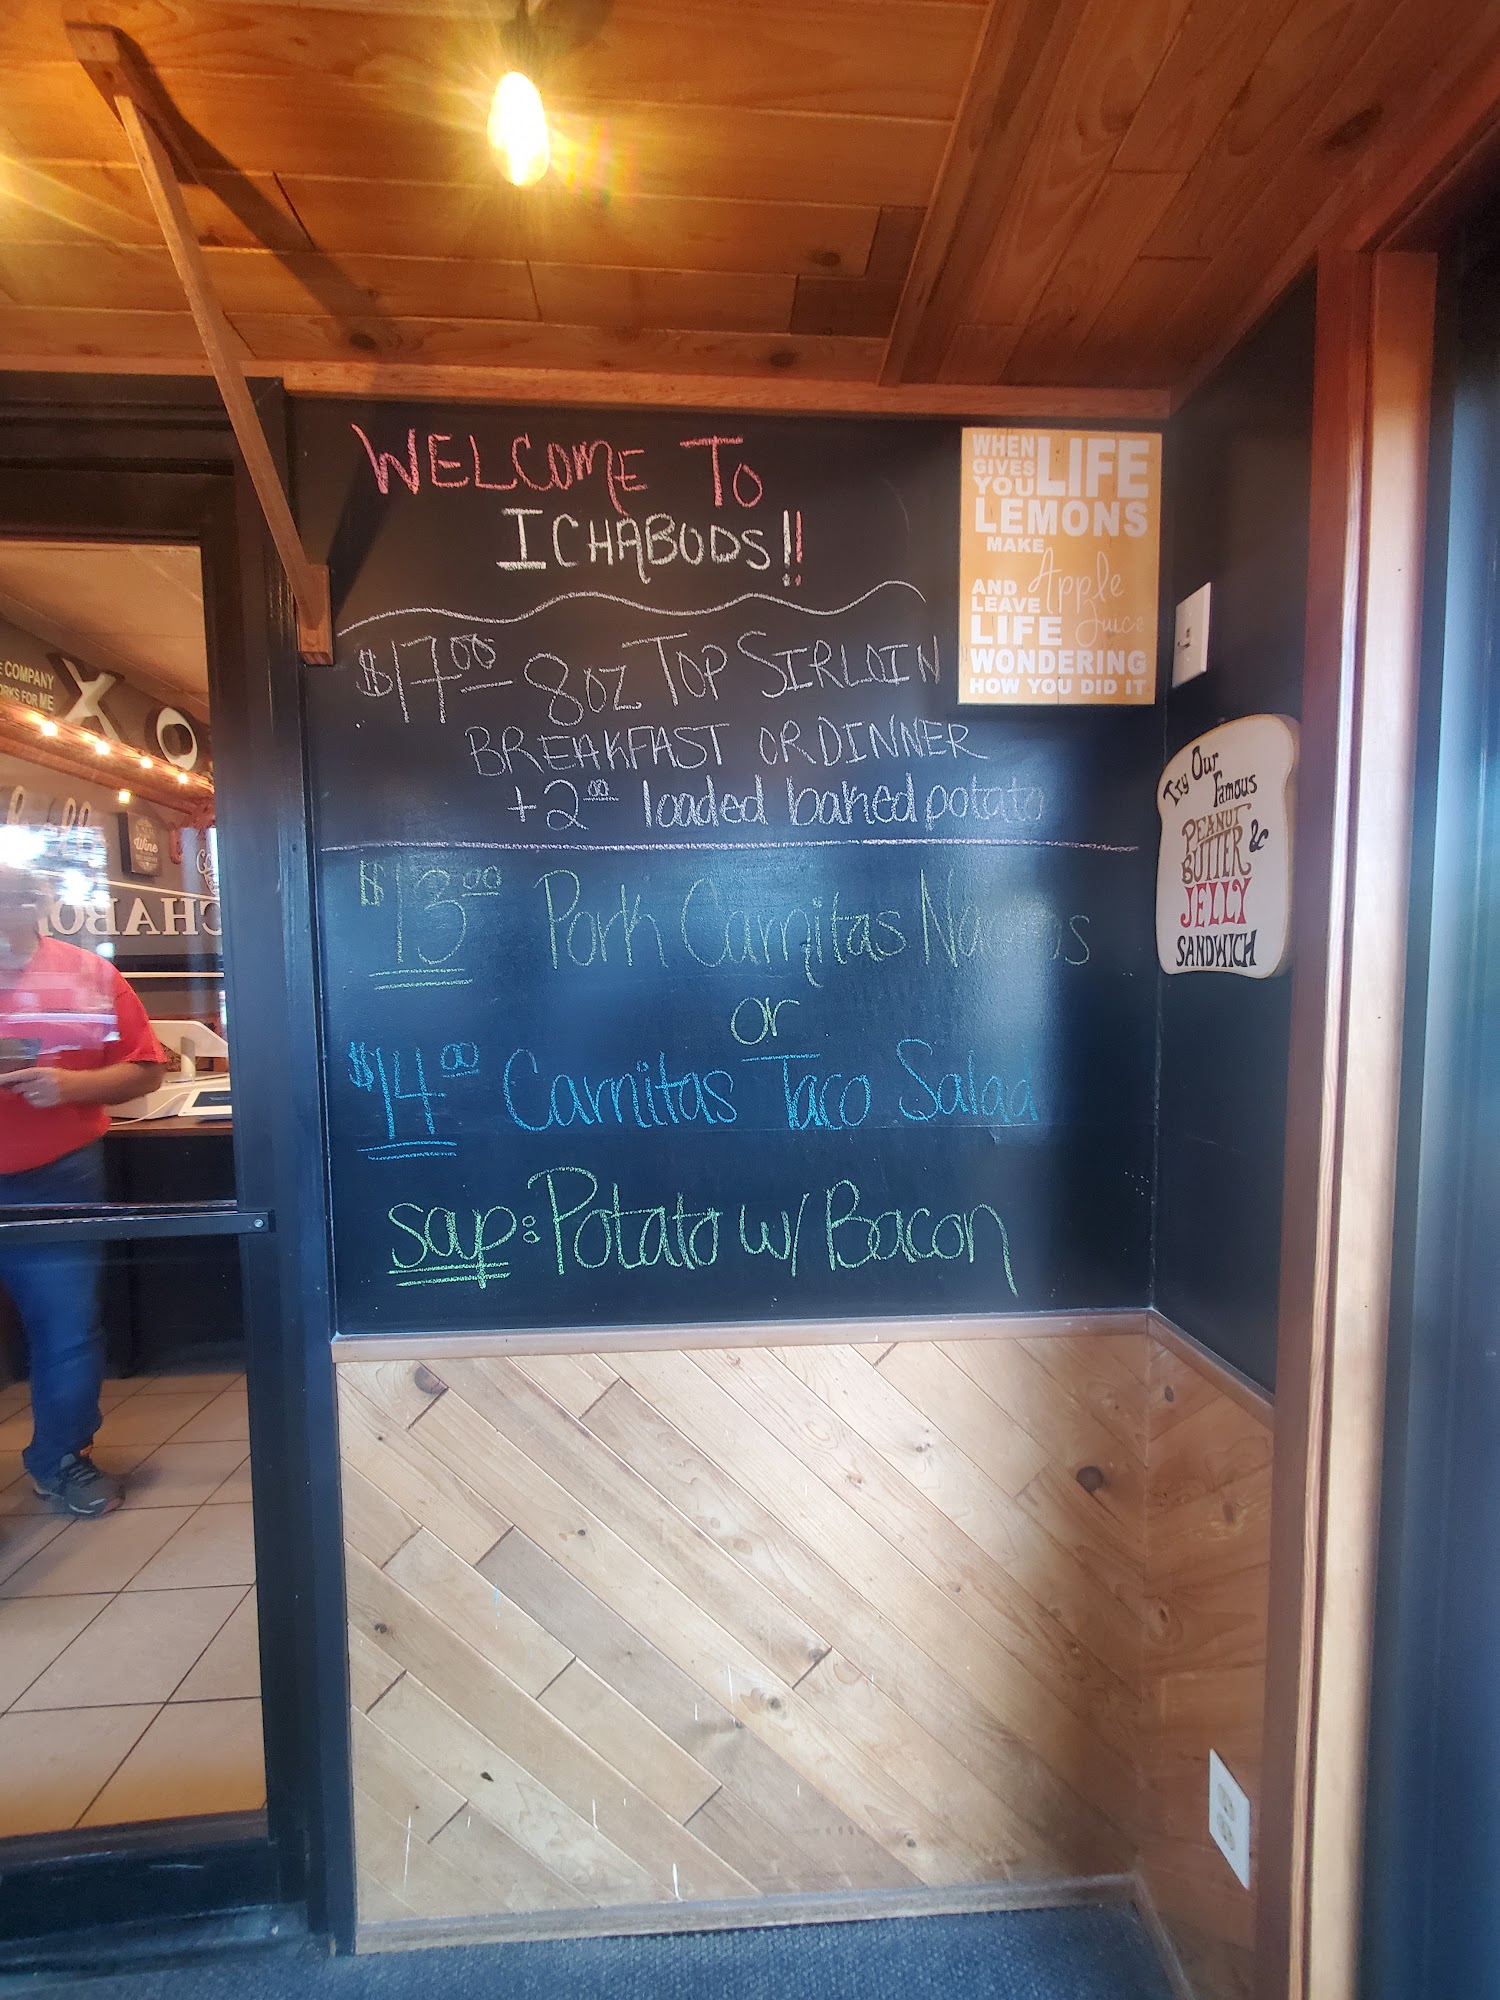 WELCOME TO
ICHABODS!!
$17.00 8oz TOP SIRLOIN
BREAKFAST OR DINNER
+2.00 loaded baked potato
$13.00 Pork Carnitas Nachos
or
$14.00 Carnitas Taco Salad
soup: Potato w/ Bacon
WHEN
GIVES
YOU LIFE
LEMONS
MAKE
Apple
AND
LEAVE Juice
LIFE
WONDERING
HOW YOU DID IT
Try Our
Famous
PEANUT
BUTTER &
JELLY
SANDWICH
COMPANY
WORKS FOR ME
XO
Wine
CHABO